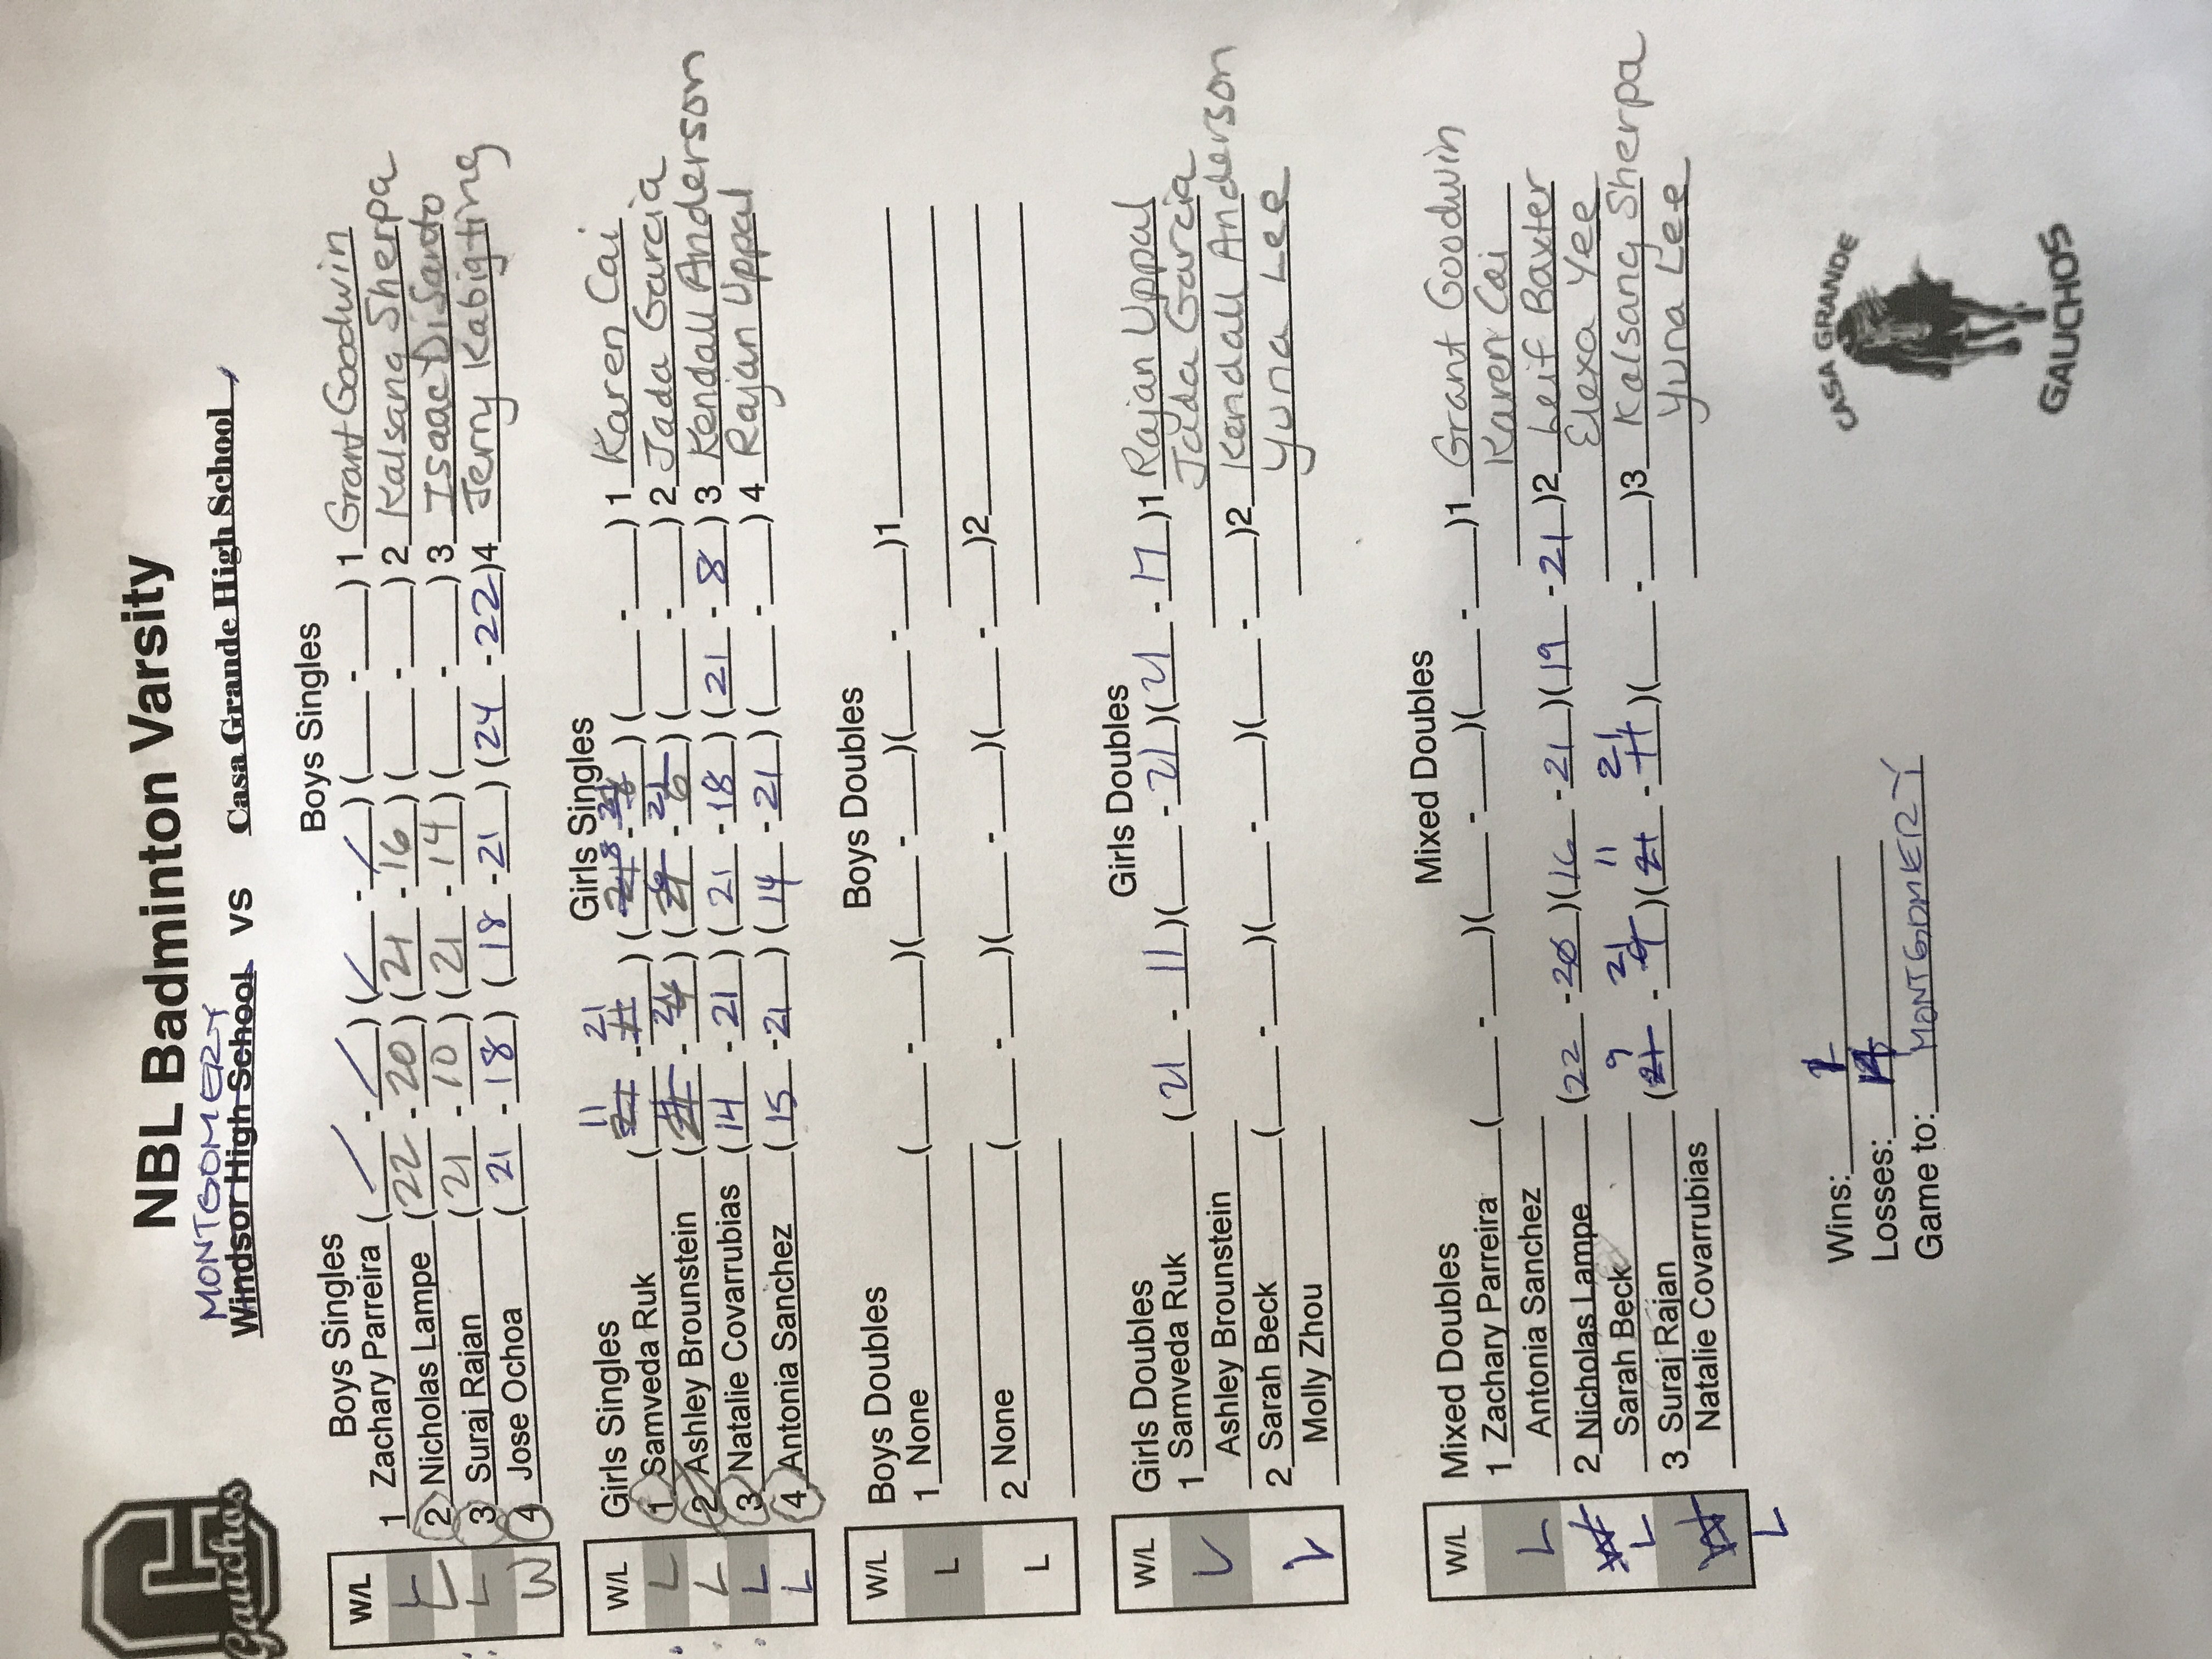 Gauchos
NBL Badminton Varsity
MONTGOMERY
Windsor High School vs Casa Grande High School
Boys Singles Boys Singles
W/L
L 1 Zachary Parreira ( - ) ( - ) ( - ) 1 Grant Goodwin
L 2 Nicholas Lampe (22 - 20) (21 - 16) ( - ) 2 Kalsang Sherpa
L 3 Suraj Rajan (21 - 10) (21 - 14) ( - ) 3 Isaac DiSanto
W 4 Jose Ochoa (21 - 18) (18 - 21) (24 - 22) 4 Jerry Kabigting
Girls Singles Girls Singles
W/L
L 1 Samveda Ruk (11 - 21) (8 - 21) ( - ) 1 Karen Cai
L 2 Ashley Brounstein ( - ) ( - ) ( - ) 2 Jada Garcia
L 3 Natalie Covarrubias (14 - 21) (21 - 18) (21 - 8) 3 Kendall Anderson
L 4 Antonia Sanchez (15 - 21) (14 - 21) ( - ) 4 Rajan Uppal
Boys Doubles Boys Doubles
W/L
L 1 None ( - )( - )( - )1
L 2 None ( - )( - )( - )2
Girls Doubles Girls Doubles
W/L
L 1 Samveda Ruk (21 - 11)( - 21)(21 - 17)1 Rajan Uppal
Ashley Brounstein Jada Garcia
L 2 Sarah Beck ( - )( - )( - )2 Kendall Anderson
Molly Zhou Yuna Lee
Mixed Doubles Mixed Doubles
W/L
L 1 Zachary Parreira ( - )( - )( - )1 Grant Goodwin
Antonia Sanchez Karen Cai
L 2 Nicholas Lampe (22 - 20)(16 - 21)(19 - 21)2 Leif Baxter
Sarah Beck Elexa Yee
L 3 Suraj Rajan (9 - 21)(11 - 21)( - )3 Kalsang Sherpa
Natalie Covarrubias Yuna Lee
Wins: 1
Losses:
Game to: MONTGOMERY
CASA GRANDE
GAUCHOS